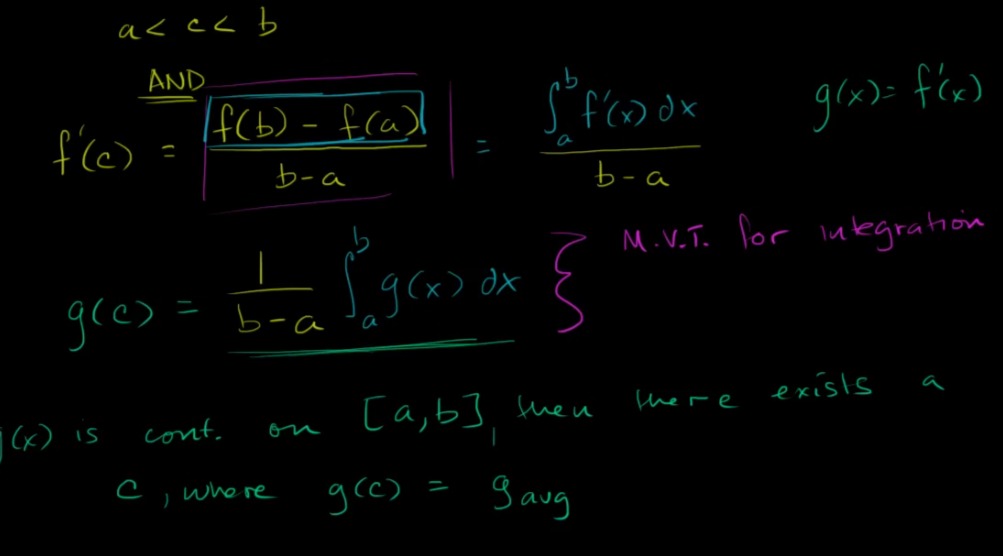 a < c < b
AND
f'(c) = \frac{f(b) - f(a)}{b-a} = \frac{\int_a^b f'(x) dx}{b-a}    g(x) = f'(x)
g(c) = \frac{1}{b-a} \int_a^b g(x) dx } M.V.T. for integration
g(x) is cont. on [a,b], then there exists a
c, where g(c) = g_{avg}